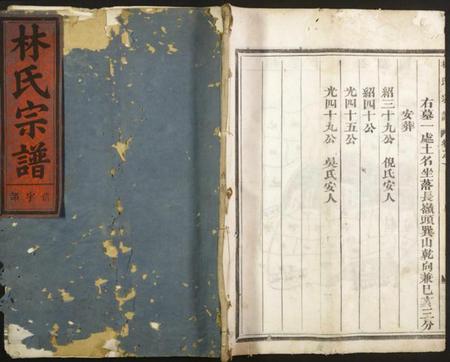 林氏宗譜
右墓一處土名坐落長嶺頭巽山乾向兼巳亥三分
安葬
紹三十九公 倪氏安人
紹四十公
光四十五公
光四十九公 吳氏安人